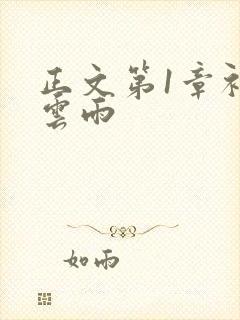 正文第1章初
雲雨
如雨